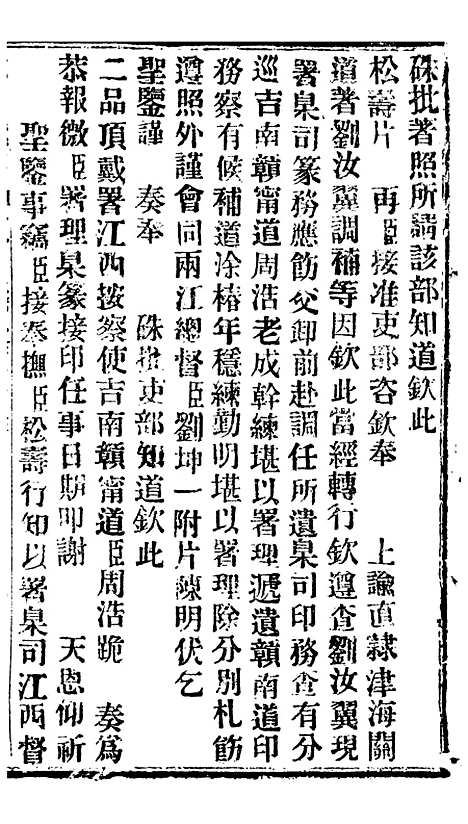 硃批著照所請該部知道欽此
松壽片　再臣接准吏部咨欽奉　　上諭直隸津海關
道著劉汝翼調補等因欽此當經轉行欽遵查劉汝翼現
署臬司篆務應飭交卸前赴調任所遺臬司印務查有分
巡吉南贛甯道周浩老成幹練堪以署理遞遺贛南道印
務察有候補道涂椿年穩練勤明堪以署理除分別札飭
遵照外謹會同兩江總督臣劉坤一附片陳明伏乞
聖鑒謹　奏奉　　硃批吏部知道欽此
二品頂戴署江西按察使吉南贛甯道臣周浩跪　奏爲
恭報微臣署理臬篆接印任事日期叩謝　　天恩仰祈
聖鑒事竊臣接奉撫臣松壽行知以署臬司江西督